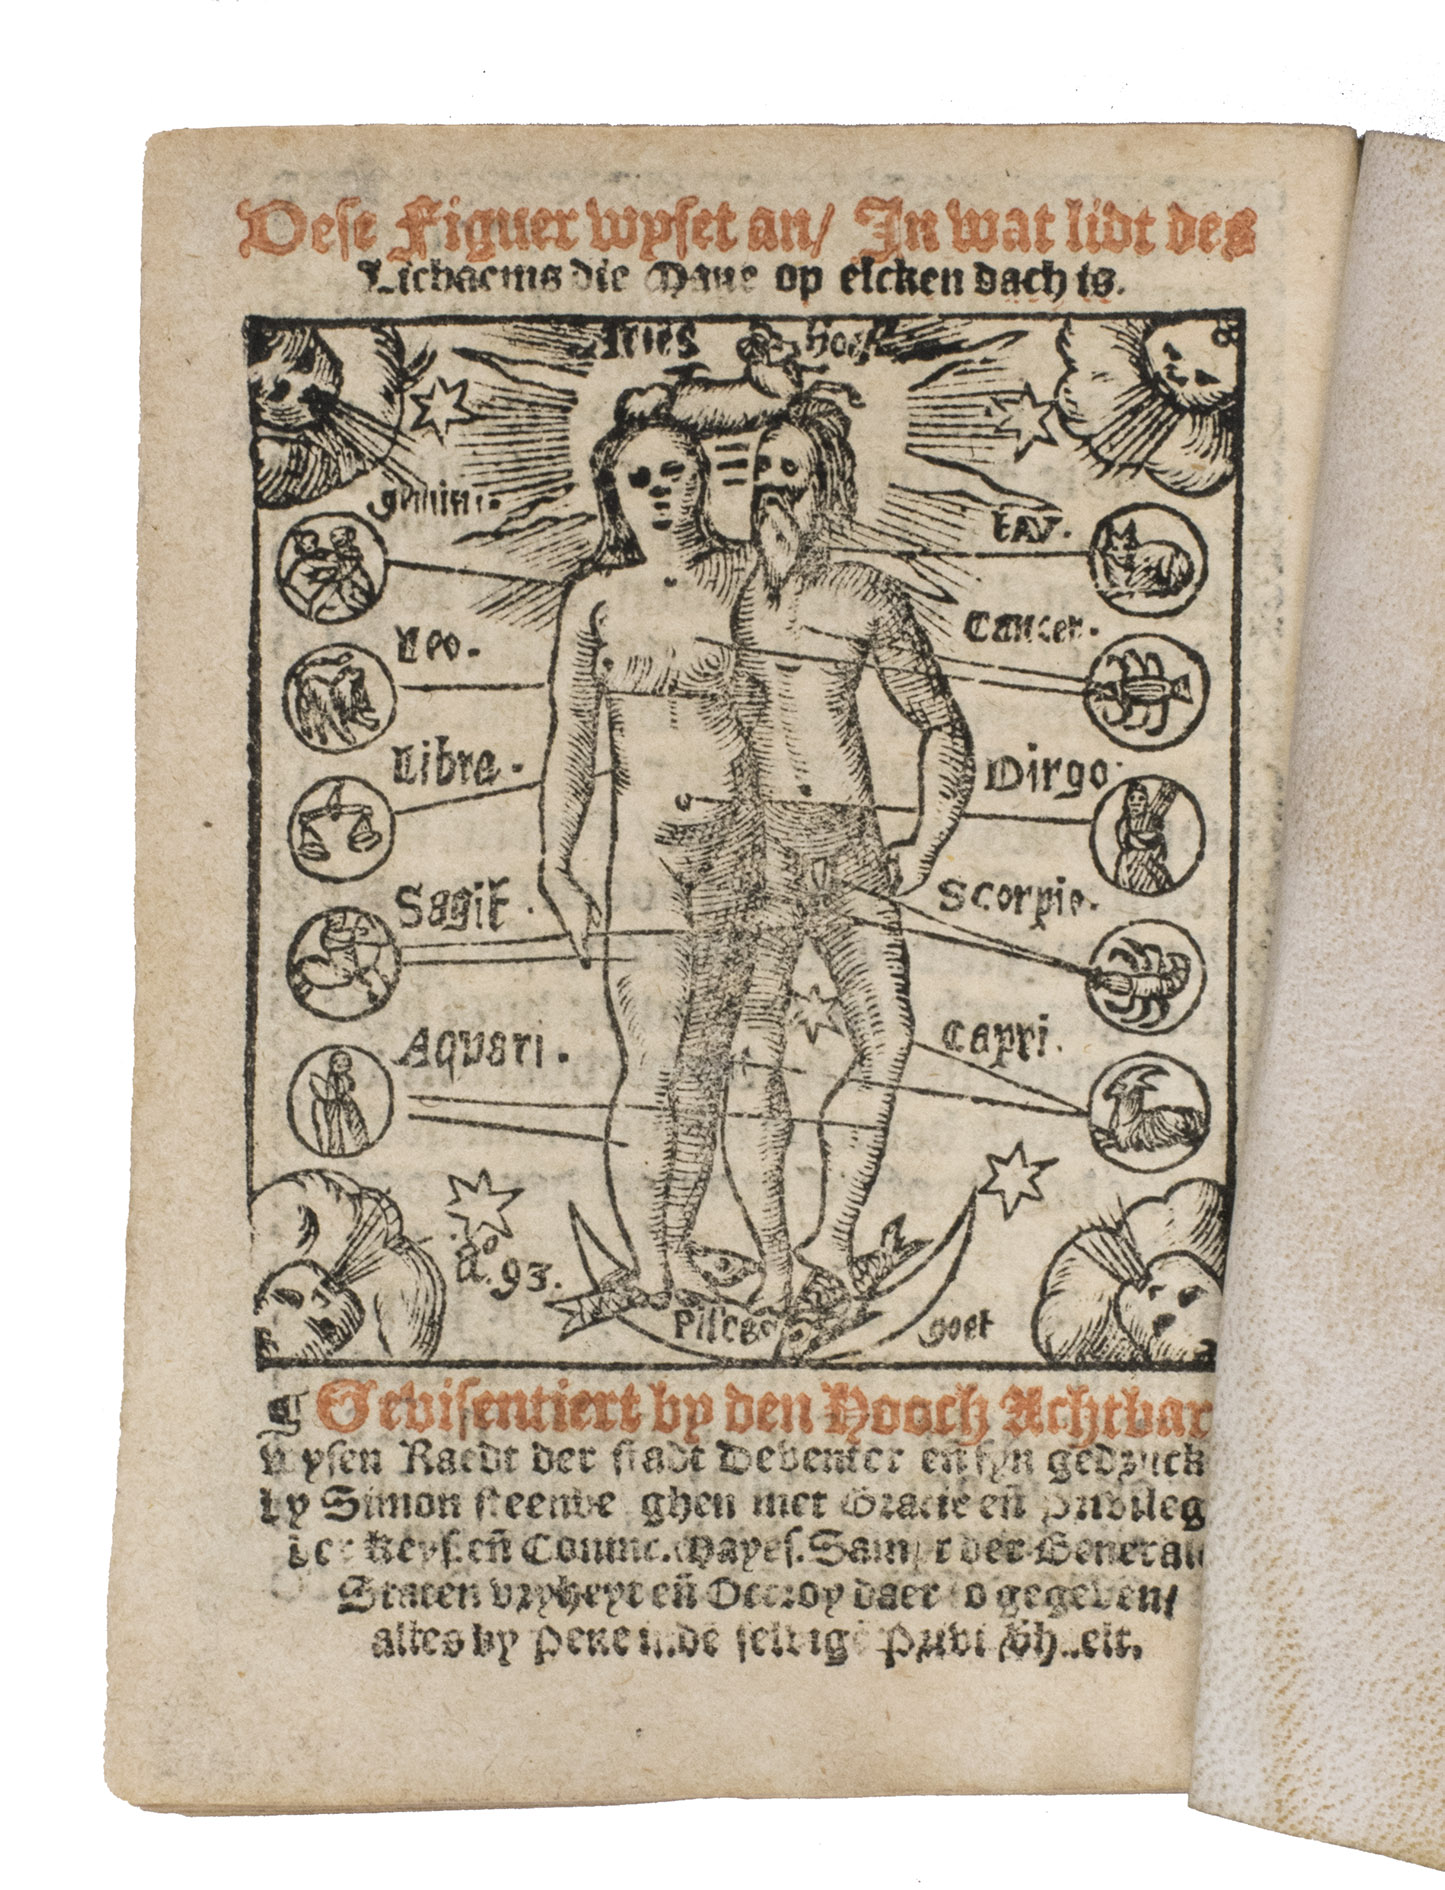 Dese Figuer wyset an/ In wat lidt des
Lichaems die Mane op elcken dach is.
Aries hoeft
gemini.
tav.
Leo.
Cancer.
Libra.
Virgo.
Sagit.
Scorpio.
Aquari.
Capri.
Aº. 93.
Pisces
goet
Gevisentiert by den Hooch Achtbar
wysen Raedt der stadt Deventer eñ syn gedruck
by Simon steenberghen met Gracie eñ Privileg
der Keys. eñ Coninc. Mayes. Samt der General
Staten vryheyt eñ Octroy daer to gegeven/
alles by Pene in de selvige